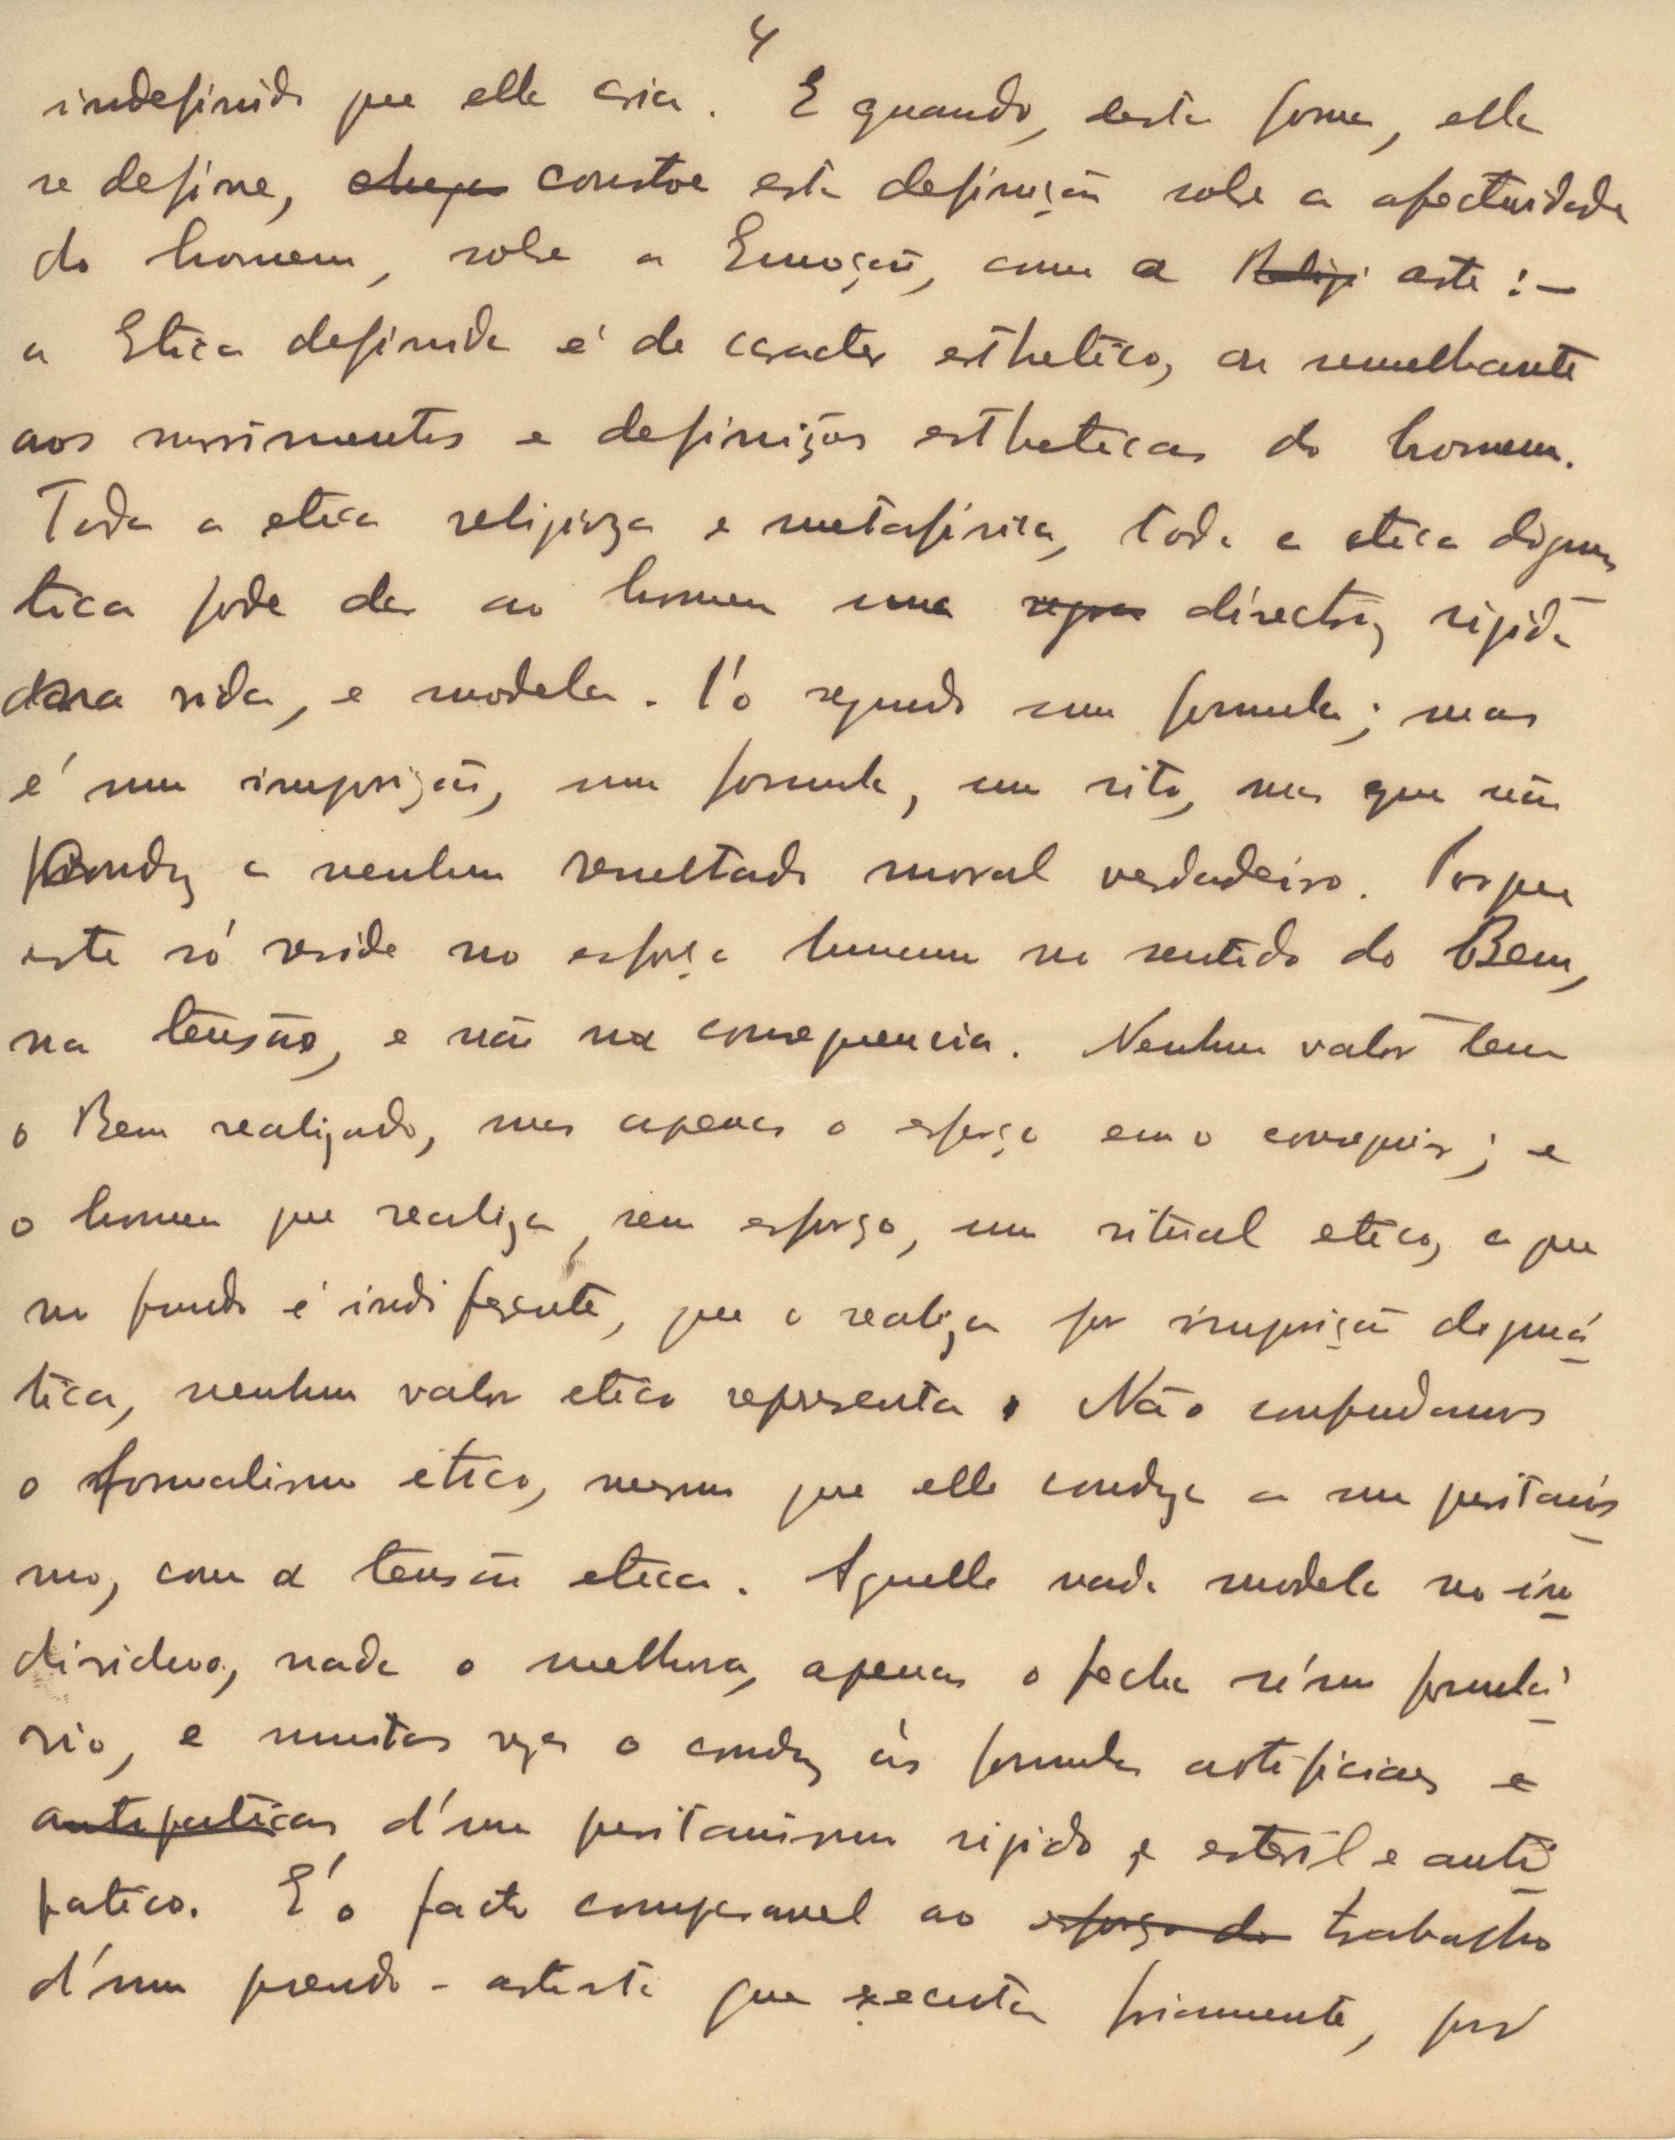 4
indefinido que elle cria. E quando, desta forma, elle
se define, chega constroe esta definição sobre a afectividade
do homem, sobre a Emoção, como a Religi arte: —
a Etica definida é de caracter esthetico, ou semelhante
aos movimentos e definições estheticas do homem.
Toda a etica religioza e metafisica, toda a etica dogma
tica pode dar ao homem uma regra directriz rigida
da sua vida, e modela-l'o segundo uma formula; mas
é uma imposição, uma formula, um rito, mas que não
conduz a nenhum resultado moral verdadeiro. Porque
este só reside no esforço humano no sentido do Bem,
na tensão, e não na consequencia. Nenhum valor tem
o Bem realizado, mas apenas o esforço em o conseguir; e
o homem que realiza, sem esforço, um ritual etico, a que
no fundo é indiferente, que o realiza por imposição dogmá-
tica, nenhum valor etico representa. Não confundamos
o formalismo etico, mesmo que elle conduza a um puritanis-
mo, com a tensão etica. Aquelle nada modela no in-
dividuo, nada o melhora, apenas o fecha n'um formulá-
rio, e muitas vezes o conduz ás formulas artificiaes e
antipaticas d'um puritanismo rigido, e esteril e anti-
patico. E' o facto comparavel ao esforço do trabalho
d'um pseudo-artista que executa friamente, por